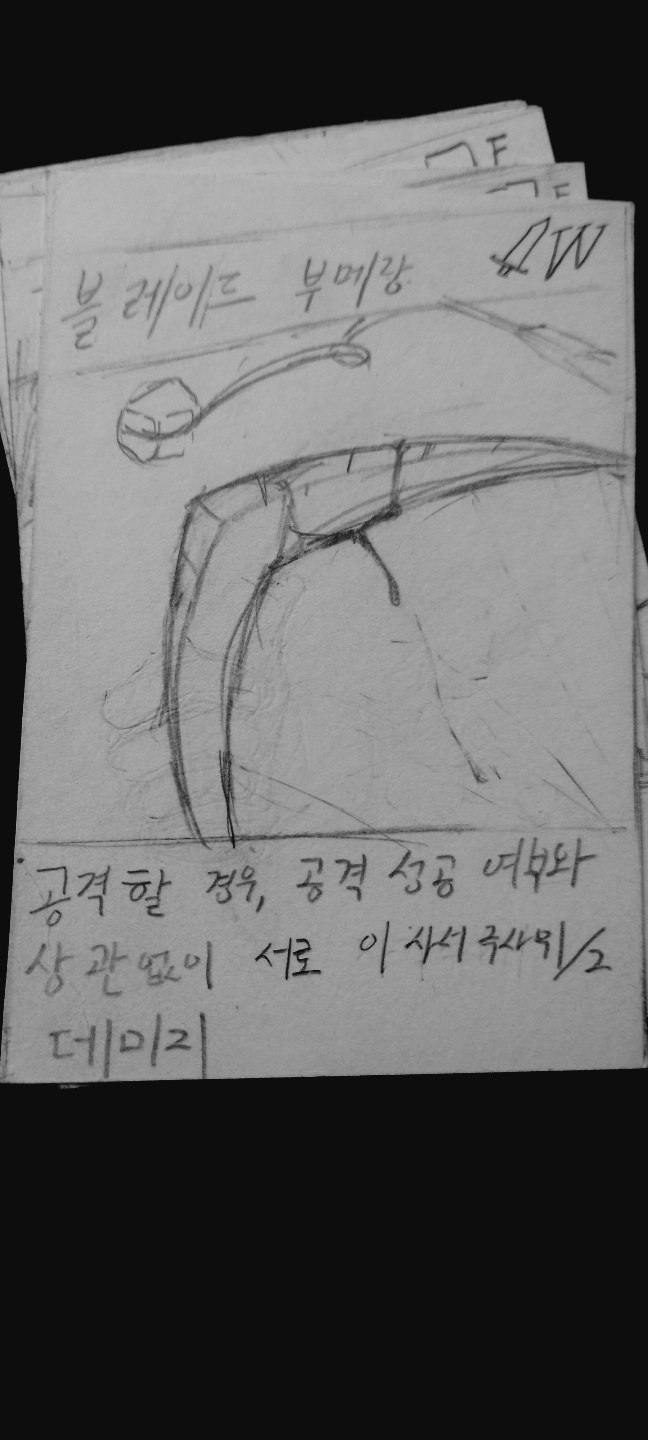 블레이드 부메랑
공격할 경우, 공격 성공 여부와
상관없이 서로 이 사서 주사위/2
데미지